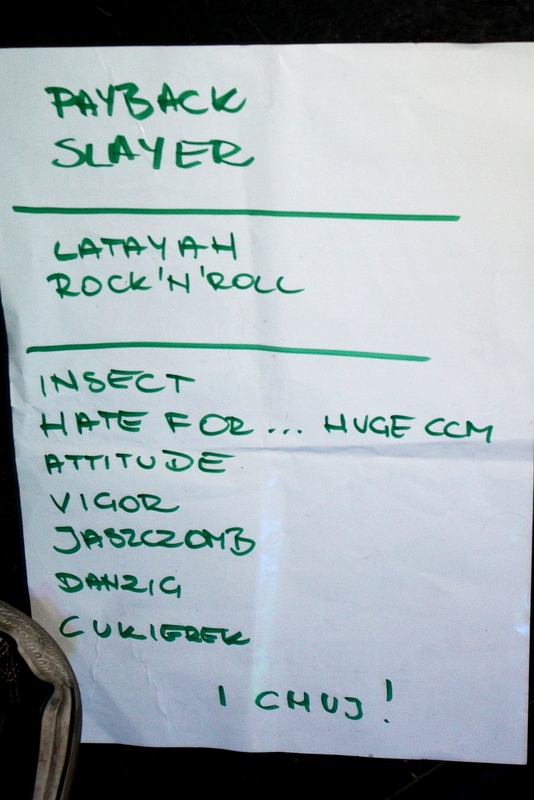 PAYBACK
SLAYER
LATAYAH
ROCK'N'ROLL
INSECT
HATE FOR... HUGE CCM
ATTITUDE
VIGOR
JASZCZOMB
DANZIG
CUKIEREK
I CHUJ!